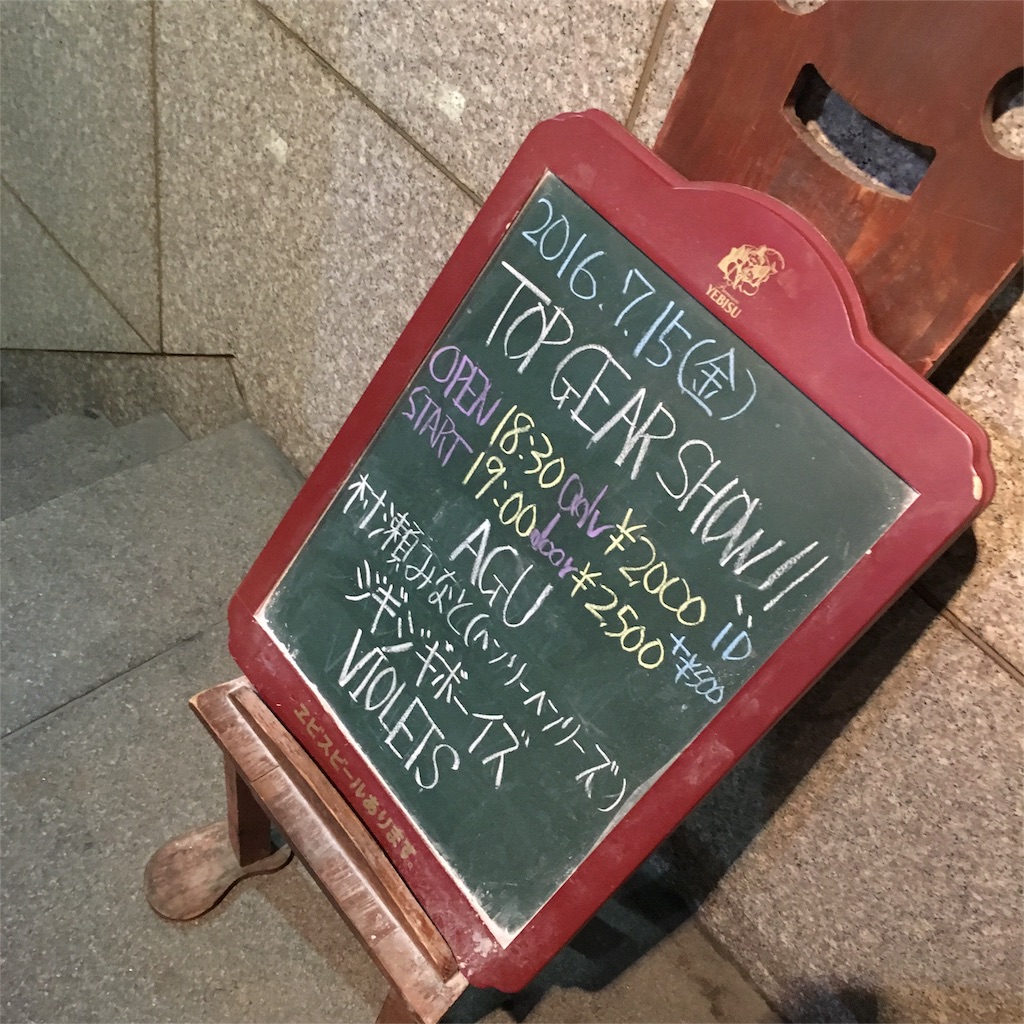 YEBISU
2016.7.15(金)
TOP GEAR SHOW!!
OPEN 18:30 adv ¥2,000
START 19:00 door ¥2,500 +¥500
AGU
村瀬みなと(ヘンリーヘンリーズ)
ジギジギボーイズ
VIOLETS
ヱビスビールあります。